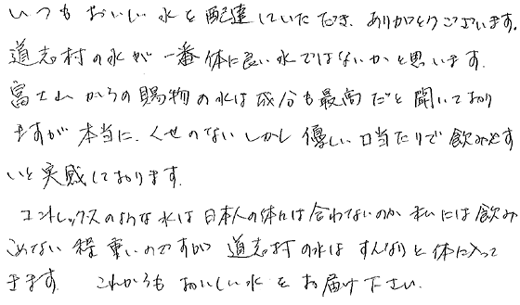 いつもおいしい水を配達していただき、ありがとうございます。
道志村の水が一番体に良い水ではないかと思います。
富士山からの賜物の水は成分も最高だと聞いており
ますが本当に、くせのないしかし優しい口当たりで飲みやす
いと実感しております。
コントレックスのような水は日本人の体には合わないのか私には飲み
こめない程重いのですが道志村の水はすんなりと体に入って
きます。これからもおいしい水をお届け下さい。